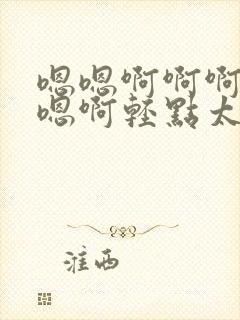 嗯嗯啊啊啊
嗯啊轻點太
淮西